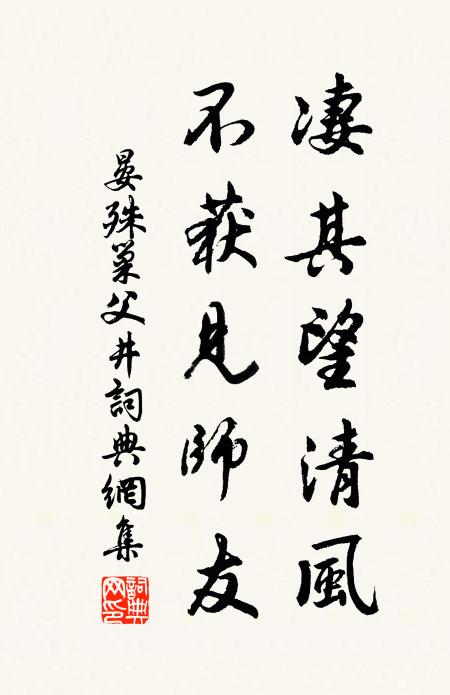 凄其望清風
不获見師友
晏殊巢父井詞典網集
詞典網印